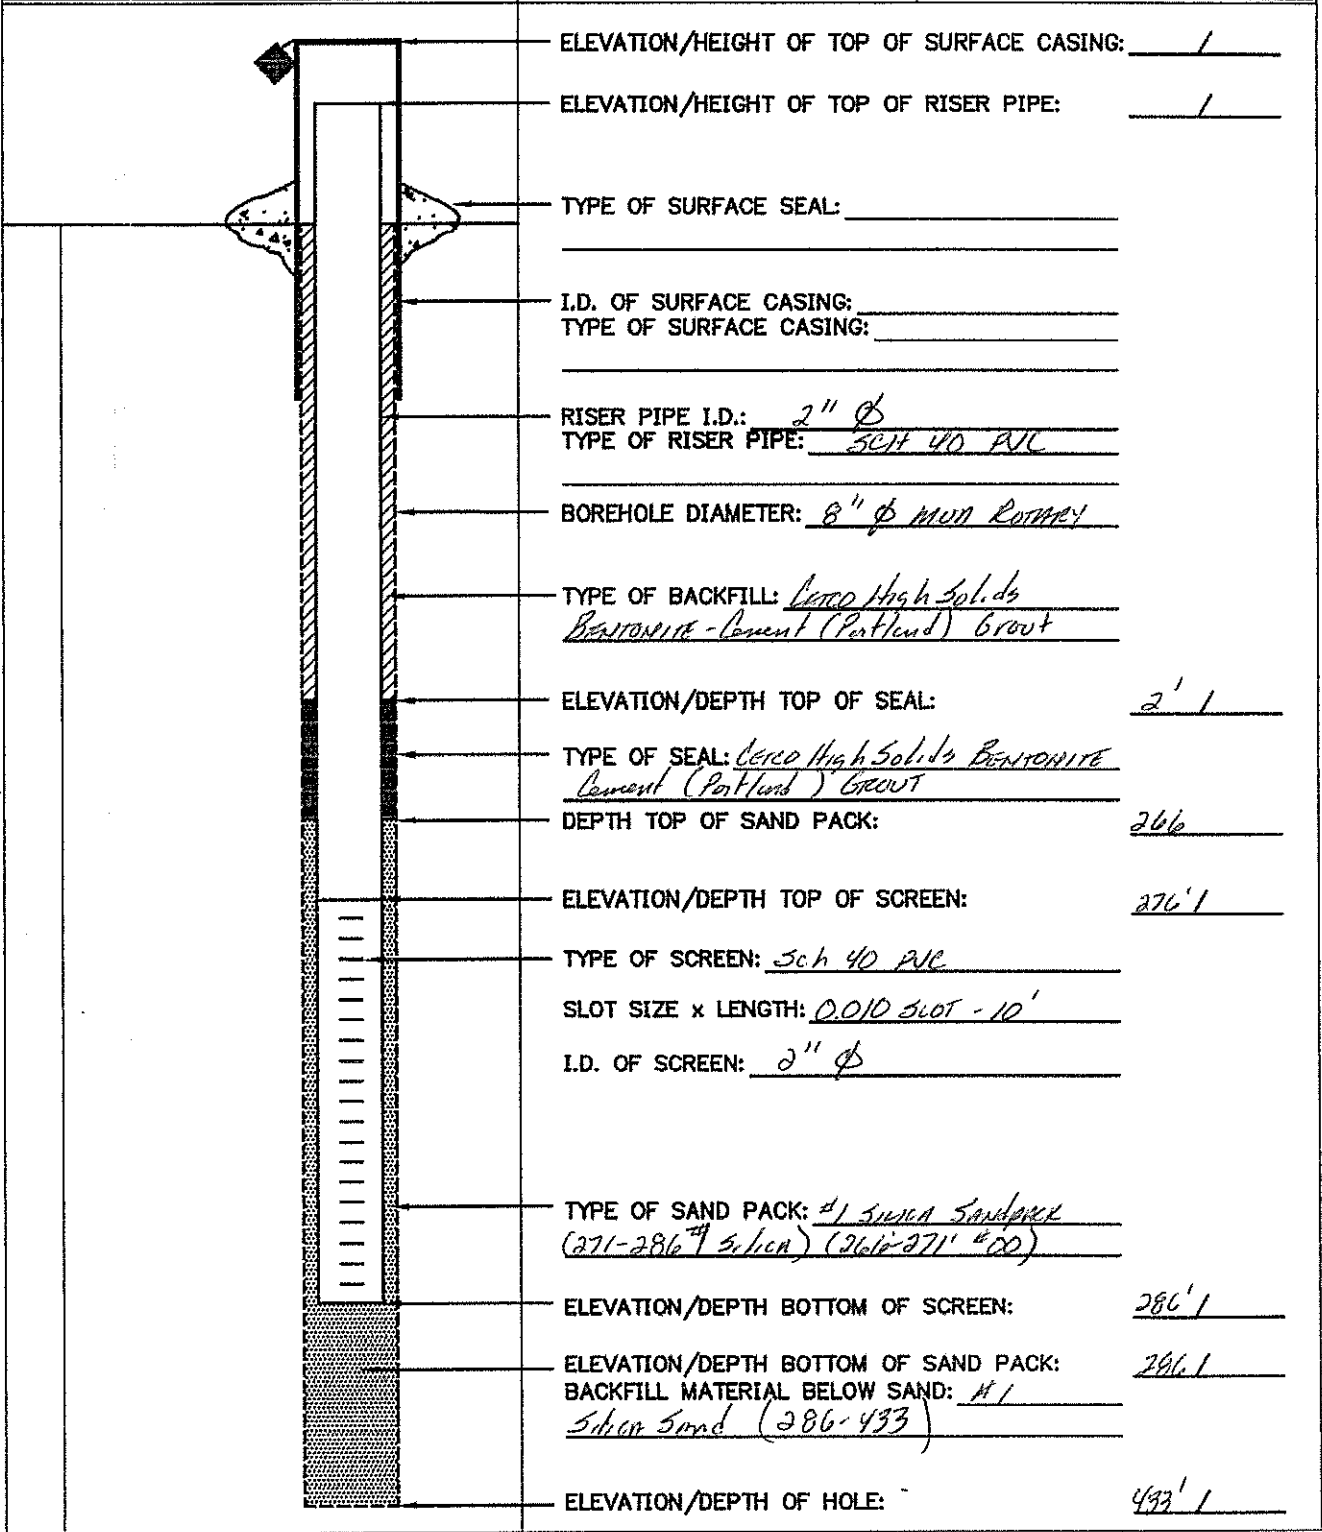 ELEVATION/HEIGHT OF TOP OF SURFACE CASING: /
ELEVATION/HEIGHT OF TOP OF RISER PIPE: /
TYPE OF SURFACE SEAL:
I.D. OF SURFACE CASING:
TYPE OF SURFACE CASING:
RISER PIPE I.D.: 2" Ø
TYPE OF RISER PIPE: SCH 40 PVC
BOREHOLE DIAMETER: 8" Ø MUD ROTARY
TYPE OF BACKFILL: Cetco High Solids
BENTONITE-Cement (Portland) Grout
ELEVATION/DEPTH TOP OF SEAL: 2' /
TYPE OF SEAL: Cetco High Solids BENTONITE
Cement (Portland) GROUT
DEPTH TOP OF SAND PACK: 266
ELEVATION/DEPTH TOP OF SCREEN: 276' /
TYPE OF SCREEN: Sch 40 PVC
SLOT SIZE x LENGTH: 0.010 SLOT - 10'
I.D. OF SCREEN: 2" Ø
TYPE OF SAND PACK: #1 SILICA SANDPACK
(271-286 #1 Silica) (266-271' #00)
ELEVATION/DEPTH BOTTOM OF SCREEN: 286' /
ELEVATION/DEPTH BOTTOM OF SAND PACK: 286 /
BACKFILL MATERIAL BELOW SAND: #1
Silica Sand (286-433)
ELEVATION/DEPTH OF HOLE: 433' /